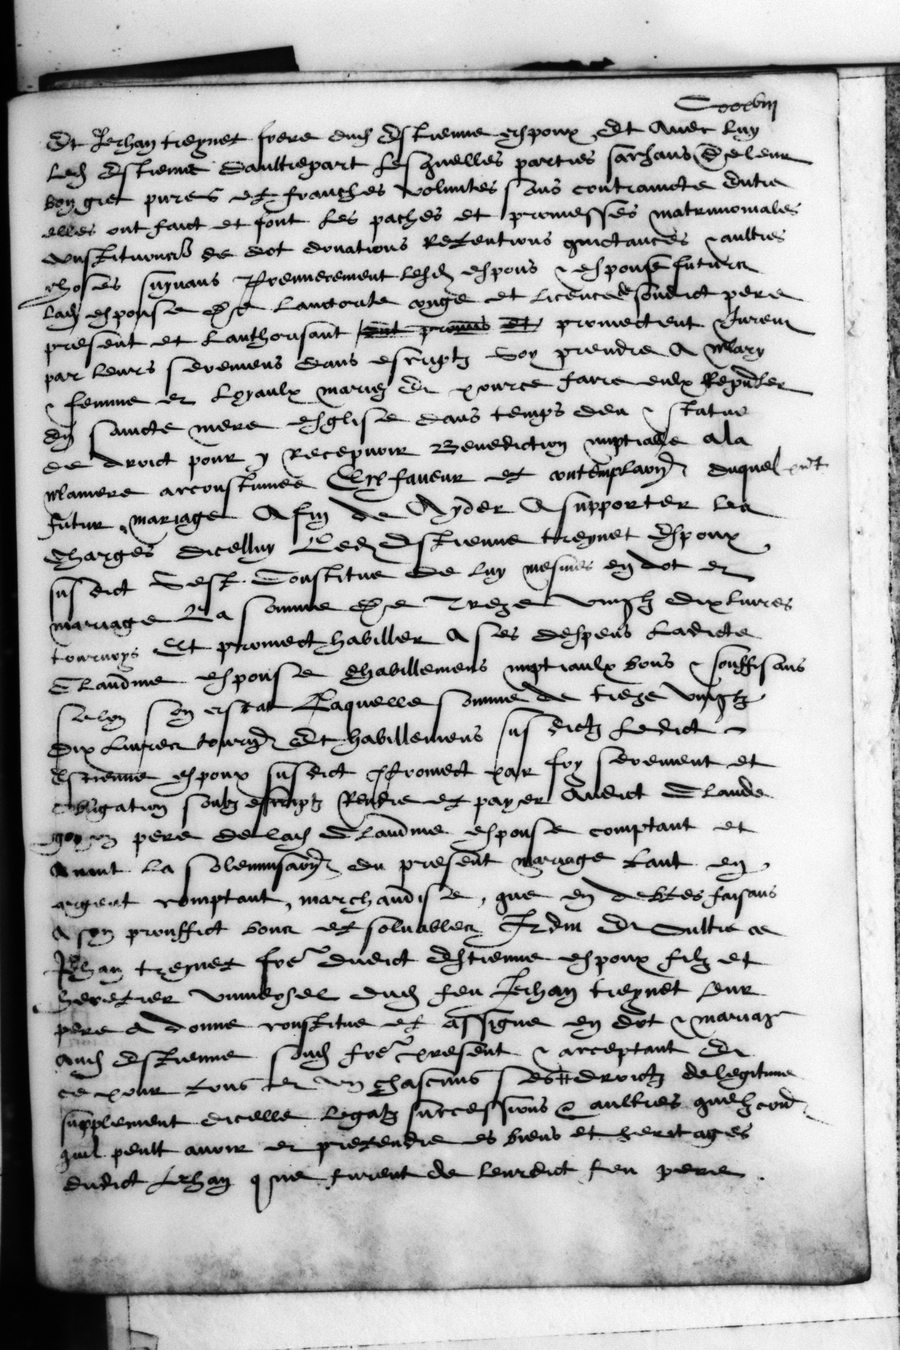 Et Jerhan treynet frere dud Estienne espoux Et avec luy
led Estienne daultrepart lesquelles parties sachans de leur
bon gre pures et franches voluntes sans contraincte dutre
elles ont faict et font les paches et promesses matrimoniales
constitucions de dot donations Retentions quictances & aultres
choses suyvans Premierement lesd espous & espouse futurs
lad espouse de lauctorite conge et licence desondict pere
present et lauthorisant promectent Jurent
par leurs seremens dans escriptz Soy prendre A Mary
& femme et loyaulx maries Et pource faire eulx
en saincte mere esglise dans temps deu & statue
de droict pour y Recepvoir Benediction nuptialle a la
Maniere accoustumee En faveur et contemplaon duquel pnt
futur mariage Afin de Ayder A supporter les
charges dicelluy Led Estienne treynet Espoux
susdict Sest Constitue de luy mesmes en dot et
mariage La somme de Treze vingtz dix livres
tournoys Et promect habiller A ses despens Ladicte
Claudine espouse dhabillemens nuptiaulx bons & souffisans
selon son estat Laquelle somme de treze vingtz
dix livres tourns Et habillemens susdictz Ledict
Estienne espoux susdict Promect par foy serement et
obligation soubz escriptz Rendre et payer Audict Claude
pere de lad Claudine espouse comptant et
Avant la solemnisaon du present mariage tant en
argent comptant, marchandise, que en debtes faisans
A son prouffict bons et solvables Item Et oultre ce
Jehan treynet fre dudict Estienne espoux filz et
heretier universel dud feu Jerhan treynet leur
pere A donne constitue et assigne en dot & mariage
Aud Estienne sond fre present & acceptant Et
ce pour tous et un chascuns ses droictz de legitime
supplement dicelle legatz successions & aultres quelzconq
quil peult avoir et pretendre es biens et heritages
dudict Jerhan que furent de leurdict feu pere